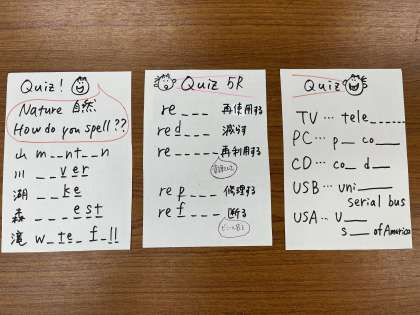 Quiz!
Nature 自然
How do you spell??
山 m__nt__n
川 __ver
湖 __ke
森 ___est
滝 w_te_f_ll
Quiz 5R
re___ 再使用する
red___ 減らす
re_____ 再利用する
re p____ 修理する
re f___ 断る
Quiz
TV… tele______
PC… p__ co____
CD… co__ d___
USB… uni____
serial bus
USA… U____
s___ of America